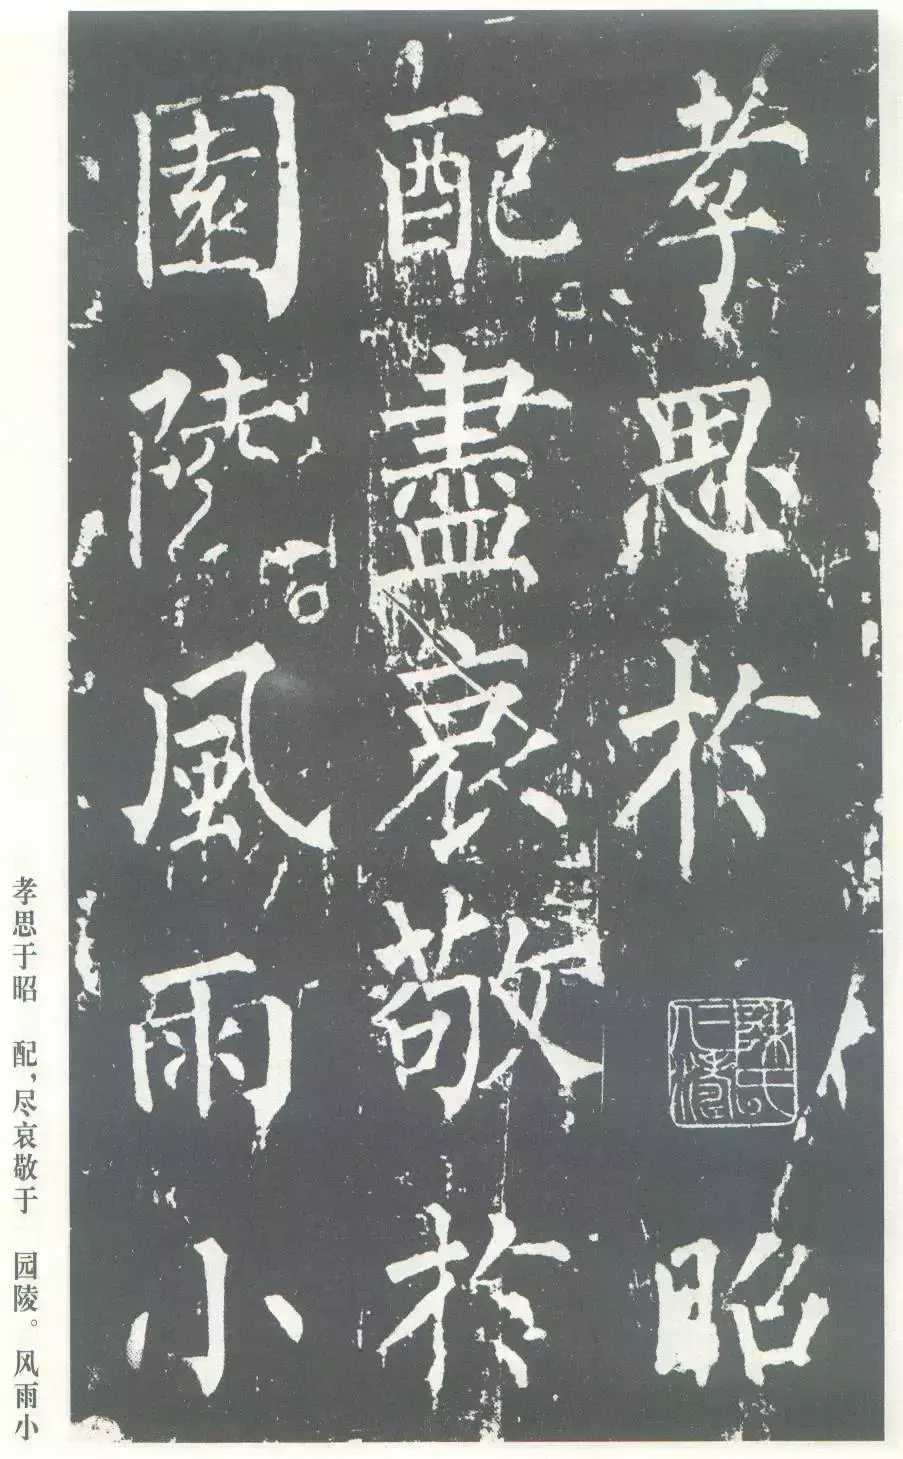 孝思於昭
配盡哀敬於
園陵風雨小
陳氏
孝思于昭　配，尽哀敬于　园陵。风雨小